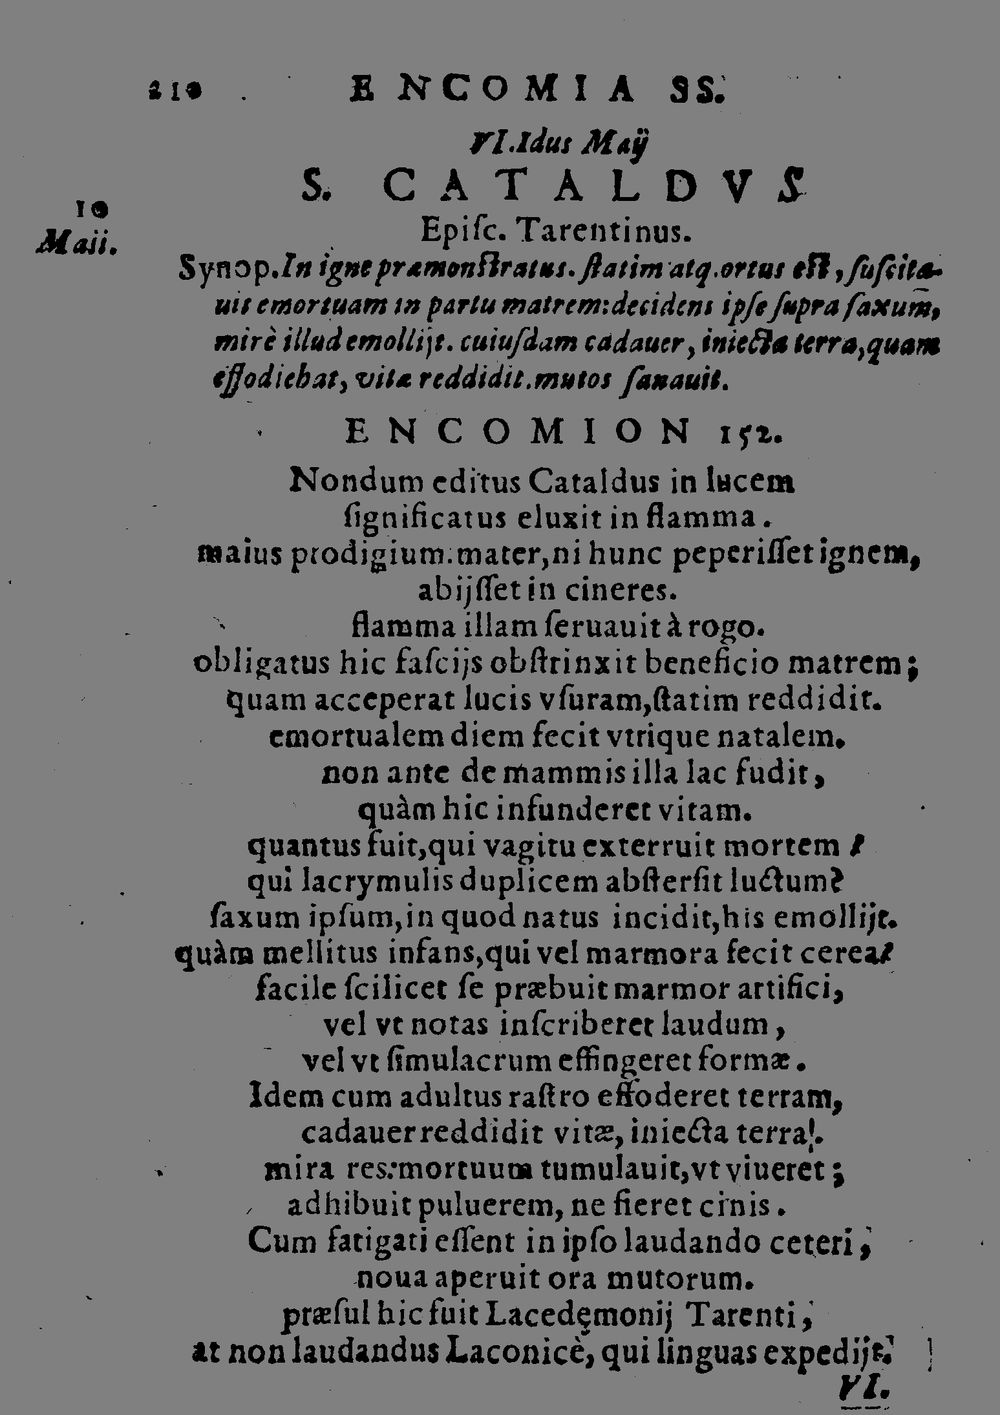 210 ENCOMIA SS.
VI.Idus Maÿ
S. CATALDVS
10
Maii.
Epiſc. Tarentinus.
Synop. In igne præmonſtratus. ſtatim atq. ortus eſt, ſuſcita-
uit emortuam in partu matrem: decidens ipſe ſupra ſaxum,
mirè illud emollijt. cuiuſdam cadauer, iniecta terra, quam
effodiebat, vitæ reddidit. mutos ſanauit.
ENCOMION 152.
Nondum editus Cataldus in lucem
ſignificatus eluxit in flamma.
maius prodigium. mater, ni hunc peperiſſet ignem,
abijſſet in cineres.
flamma illam ſeruauit à rogo.
obligatus hic faſcijs obſtrinxit beneficio matrem;
quam acceperat lucis vſuram, ſtatim reddidit.
emortualem diem fecit vtrique natalem.
non ante de mammis illa lac fudit,
quàm hic infunderet vitam.
quantus fuit, qui vagitu exterruit mortem!
qui lacrymulis duplicem abſterſit luctum?
ſaxum ipſum, in quod natus incidit, his emollijt.
quàm mellitus infans, qui vel marmora fecit cerea!
facile ſcilicet ſe præbuit marmor artifici,
vel vt notas inſcriberet laudum,
vel vt ſimulacrum effingeret formæ.
Idem cum adultus raſtro effoderet terram,
cadauer reddidit vitæ, iniecta terra.
mira res: mortuum tumulauit, vt viueret;
adhibuit puluerem, ne fieret cinis.
Cum fatigati eſſent in ipſo laudando ceteri,
noua aperuit ora mutorum.
præſul hic fuit Lacedęmonij Tarenti,
at non laudandus Laconicè, qui linguas expedijt.
VI.